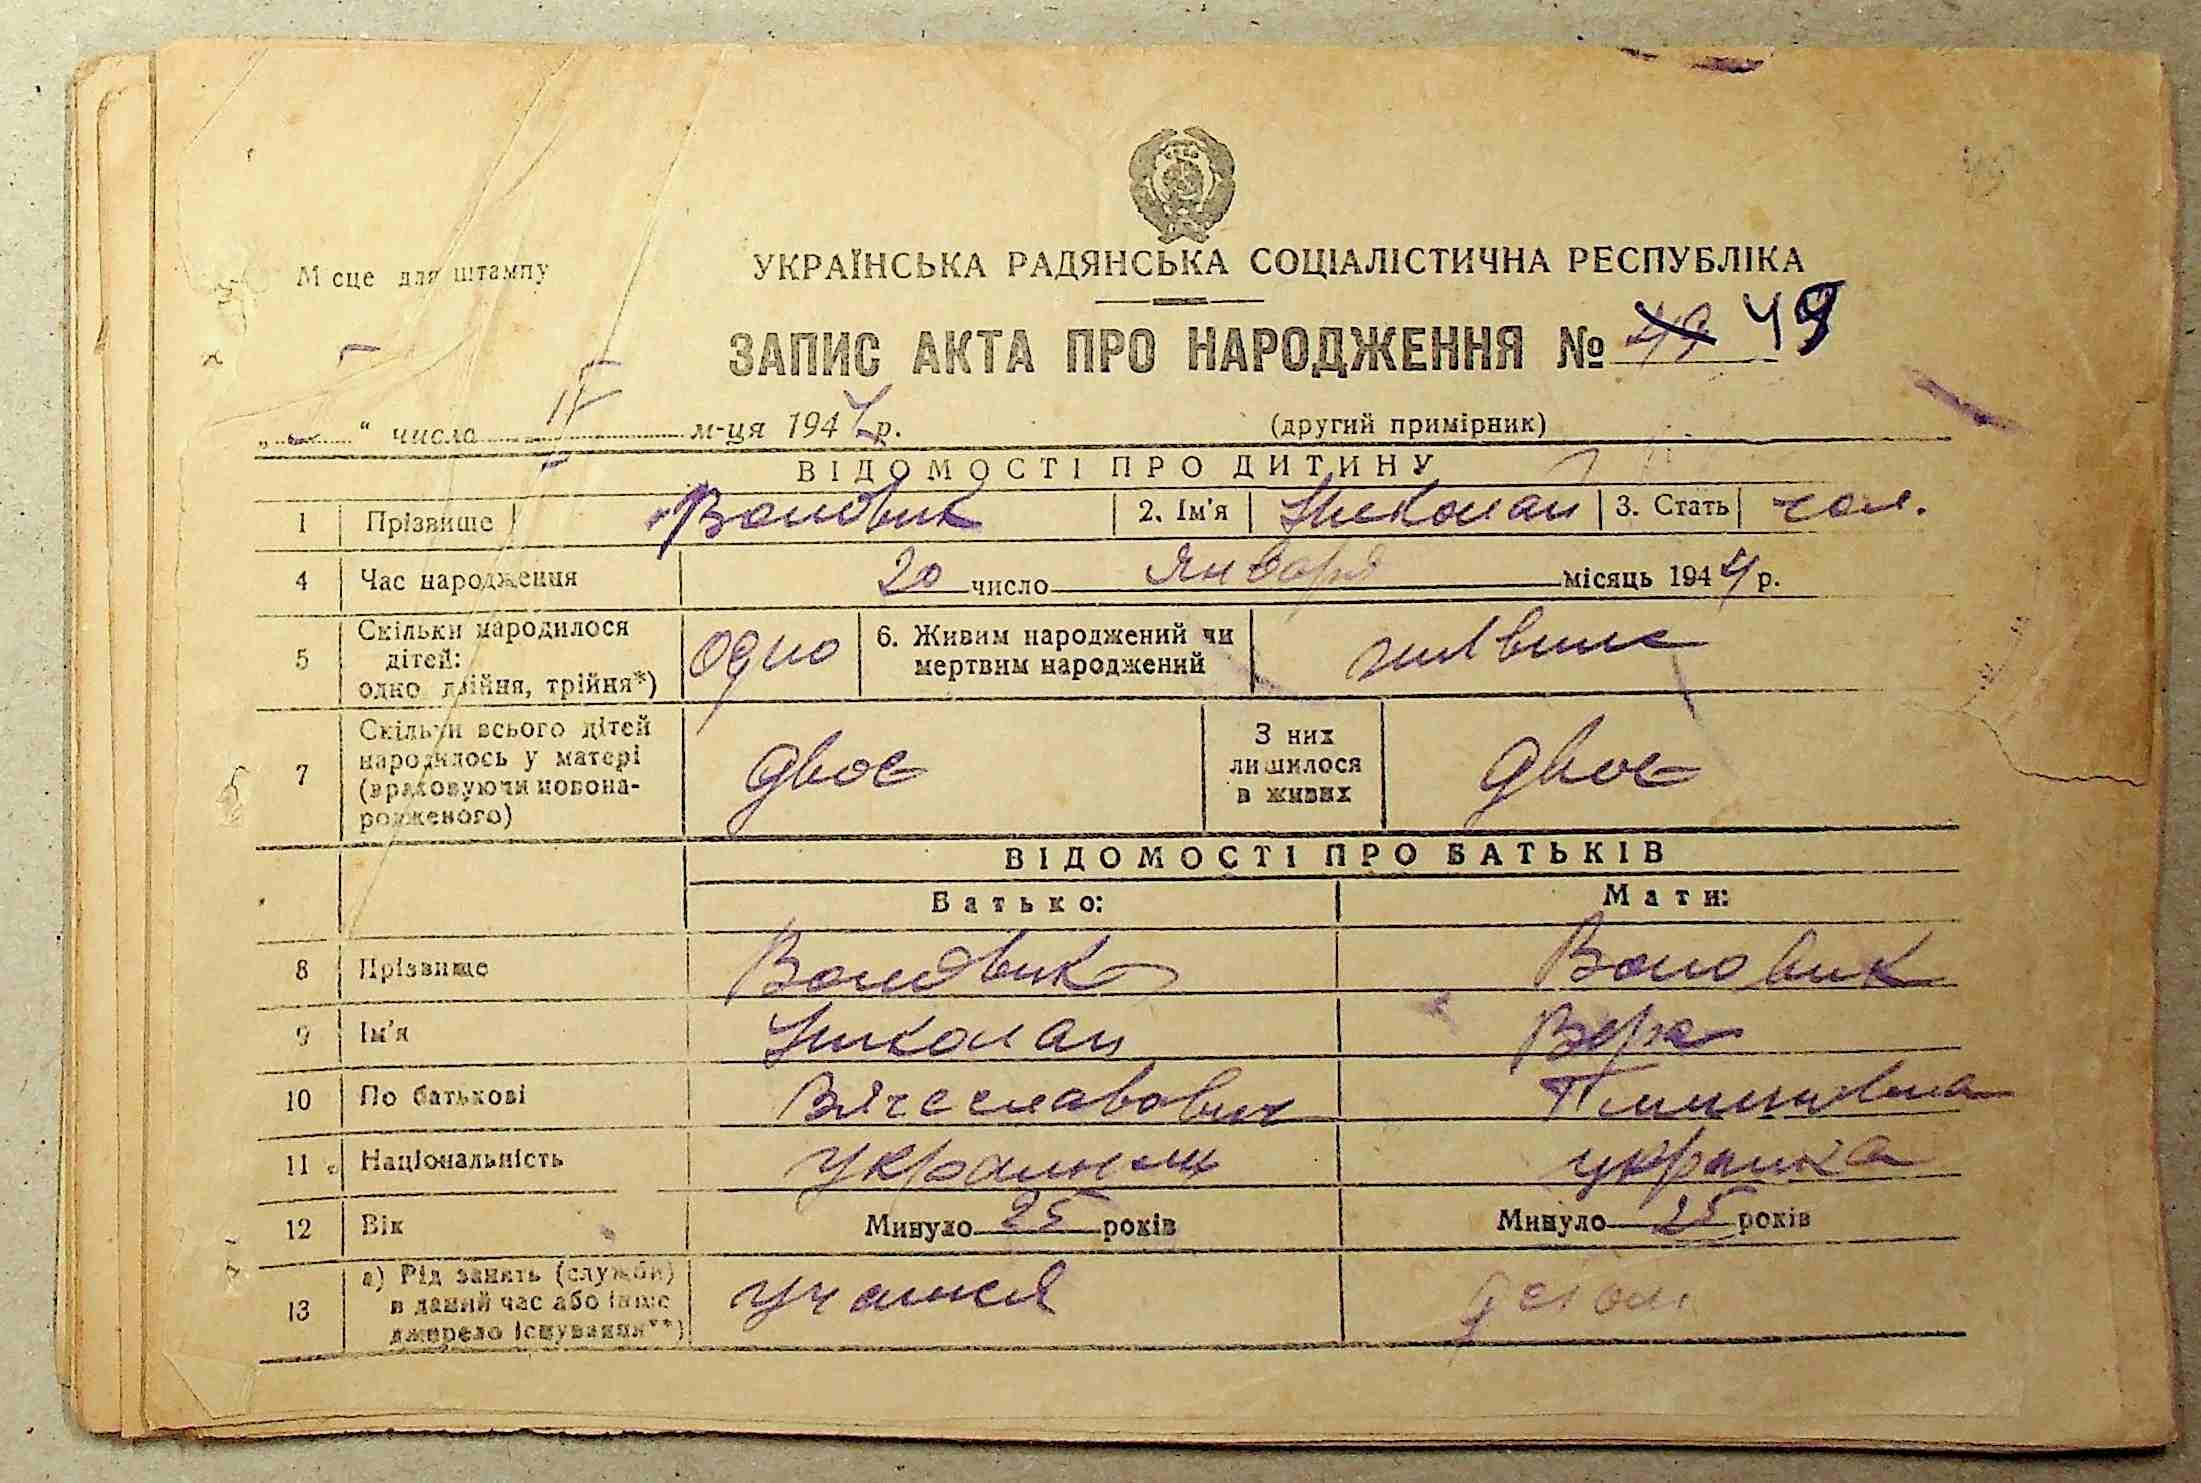 Місце для штампу
УКРАЇНСЬКА РАДЯНСЬКА СОЦІАЛІСТИЧНА РЕСПУБЛІКА
ЗАПИС АКТА ПРО НАРОДЖЕННЯ № 49 49
„ “ числа м-ця 1944 р. (другий примірник)
ВІДОМОСТІ ПРО ДИТИНУ
1 Прізвище Воловик 2. Ім'я Николай 3. Стать чол.
4 Час народження 20 число января місяць 1944 р.
5 Скільки народилося дітей: одно двійня, трійня*) одно 6. Живим народжений чи мертвим народжений живим
7 Скільки всього дітей народилось у матері (враховуючи новонародженого) двое З них лишилося в живих двое
ВІДОМОСТІ ПРО БАТЬКІВ
Батько: Мати:
8 Прізвище Воловик Воловик
9 Ім'я Николай Вера
10 По батькові Вячеславович
11 Національність украинец украинка
12 Вік Минуло 25 років Минуло 25 років
13 а) Рід занять (служби) в даний час або інше джерело існування**)